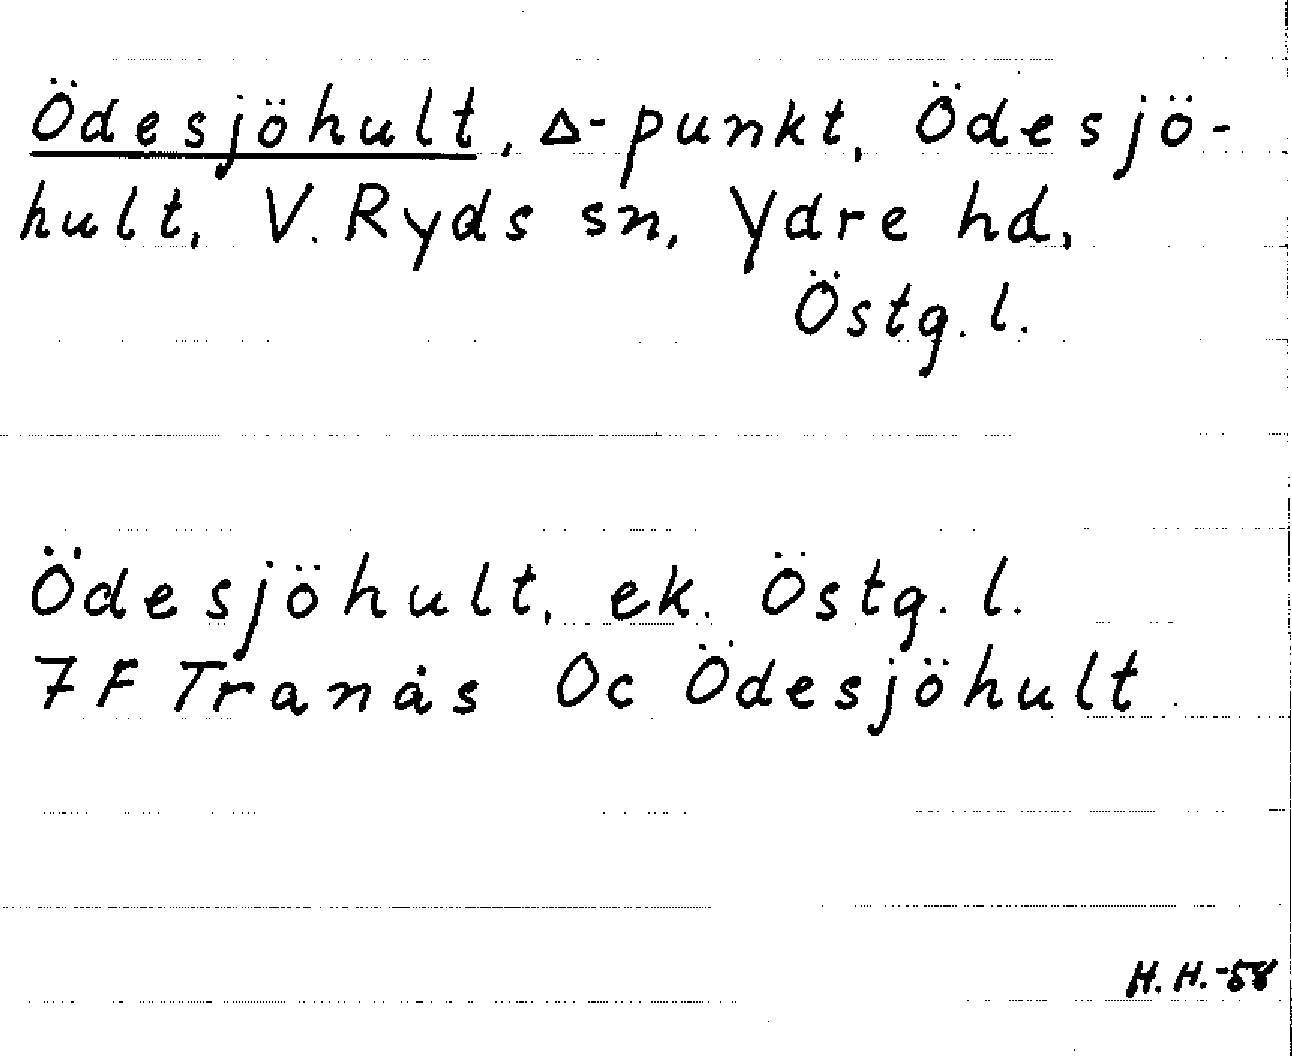 Ödesjöhult, Δ-punkt, Ödesjö-
hult, V. Ryds sn, Ydre hd,
Östg. l.
Ödesjöhult, ek. Östg. l.
7 F Tranås Oc Ödesjöhult
H. H. -58